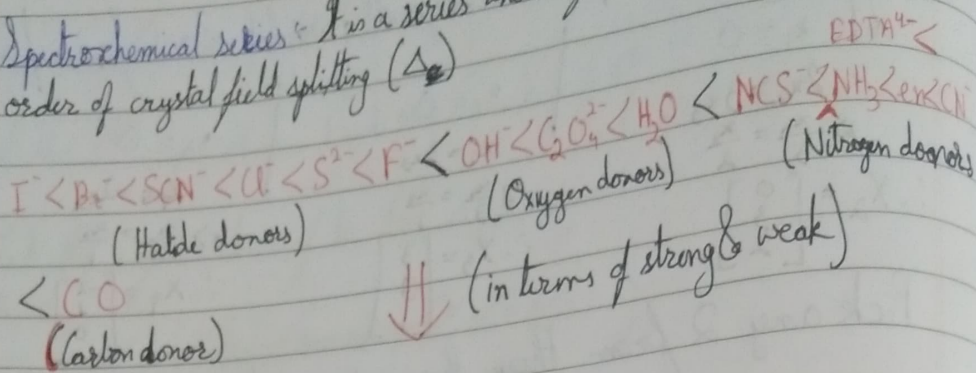 Spectrochemical series :- It is a series
order of crystal field splitting (Δ)
EDTA⁴⁻ <
I⁻ < Br⁻ < SCN⁻ < Cl⁻ < S²⁻ < F⁻ < OH⁻ < C₂O₄²⁻ < H₂O < NCS⁻ < NH₃ < en < CN
(Halide donors) (Oxygen donors) (Nitrogen donors
< CO (in terms of strong & weak)
(Carbon donor)